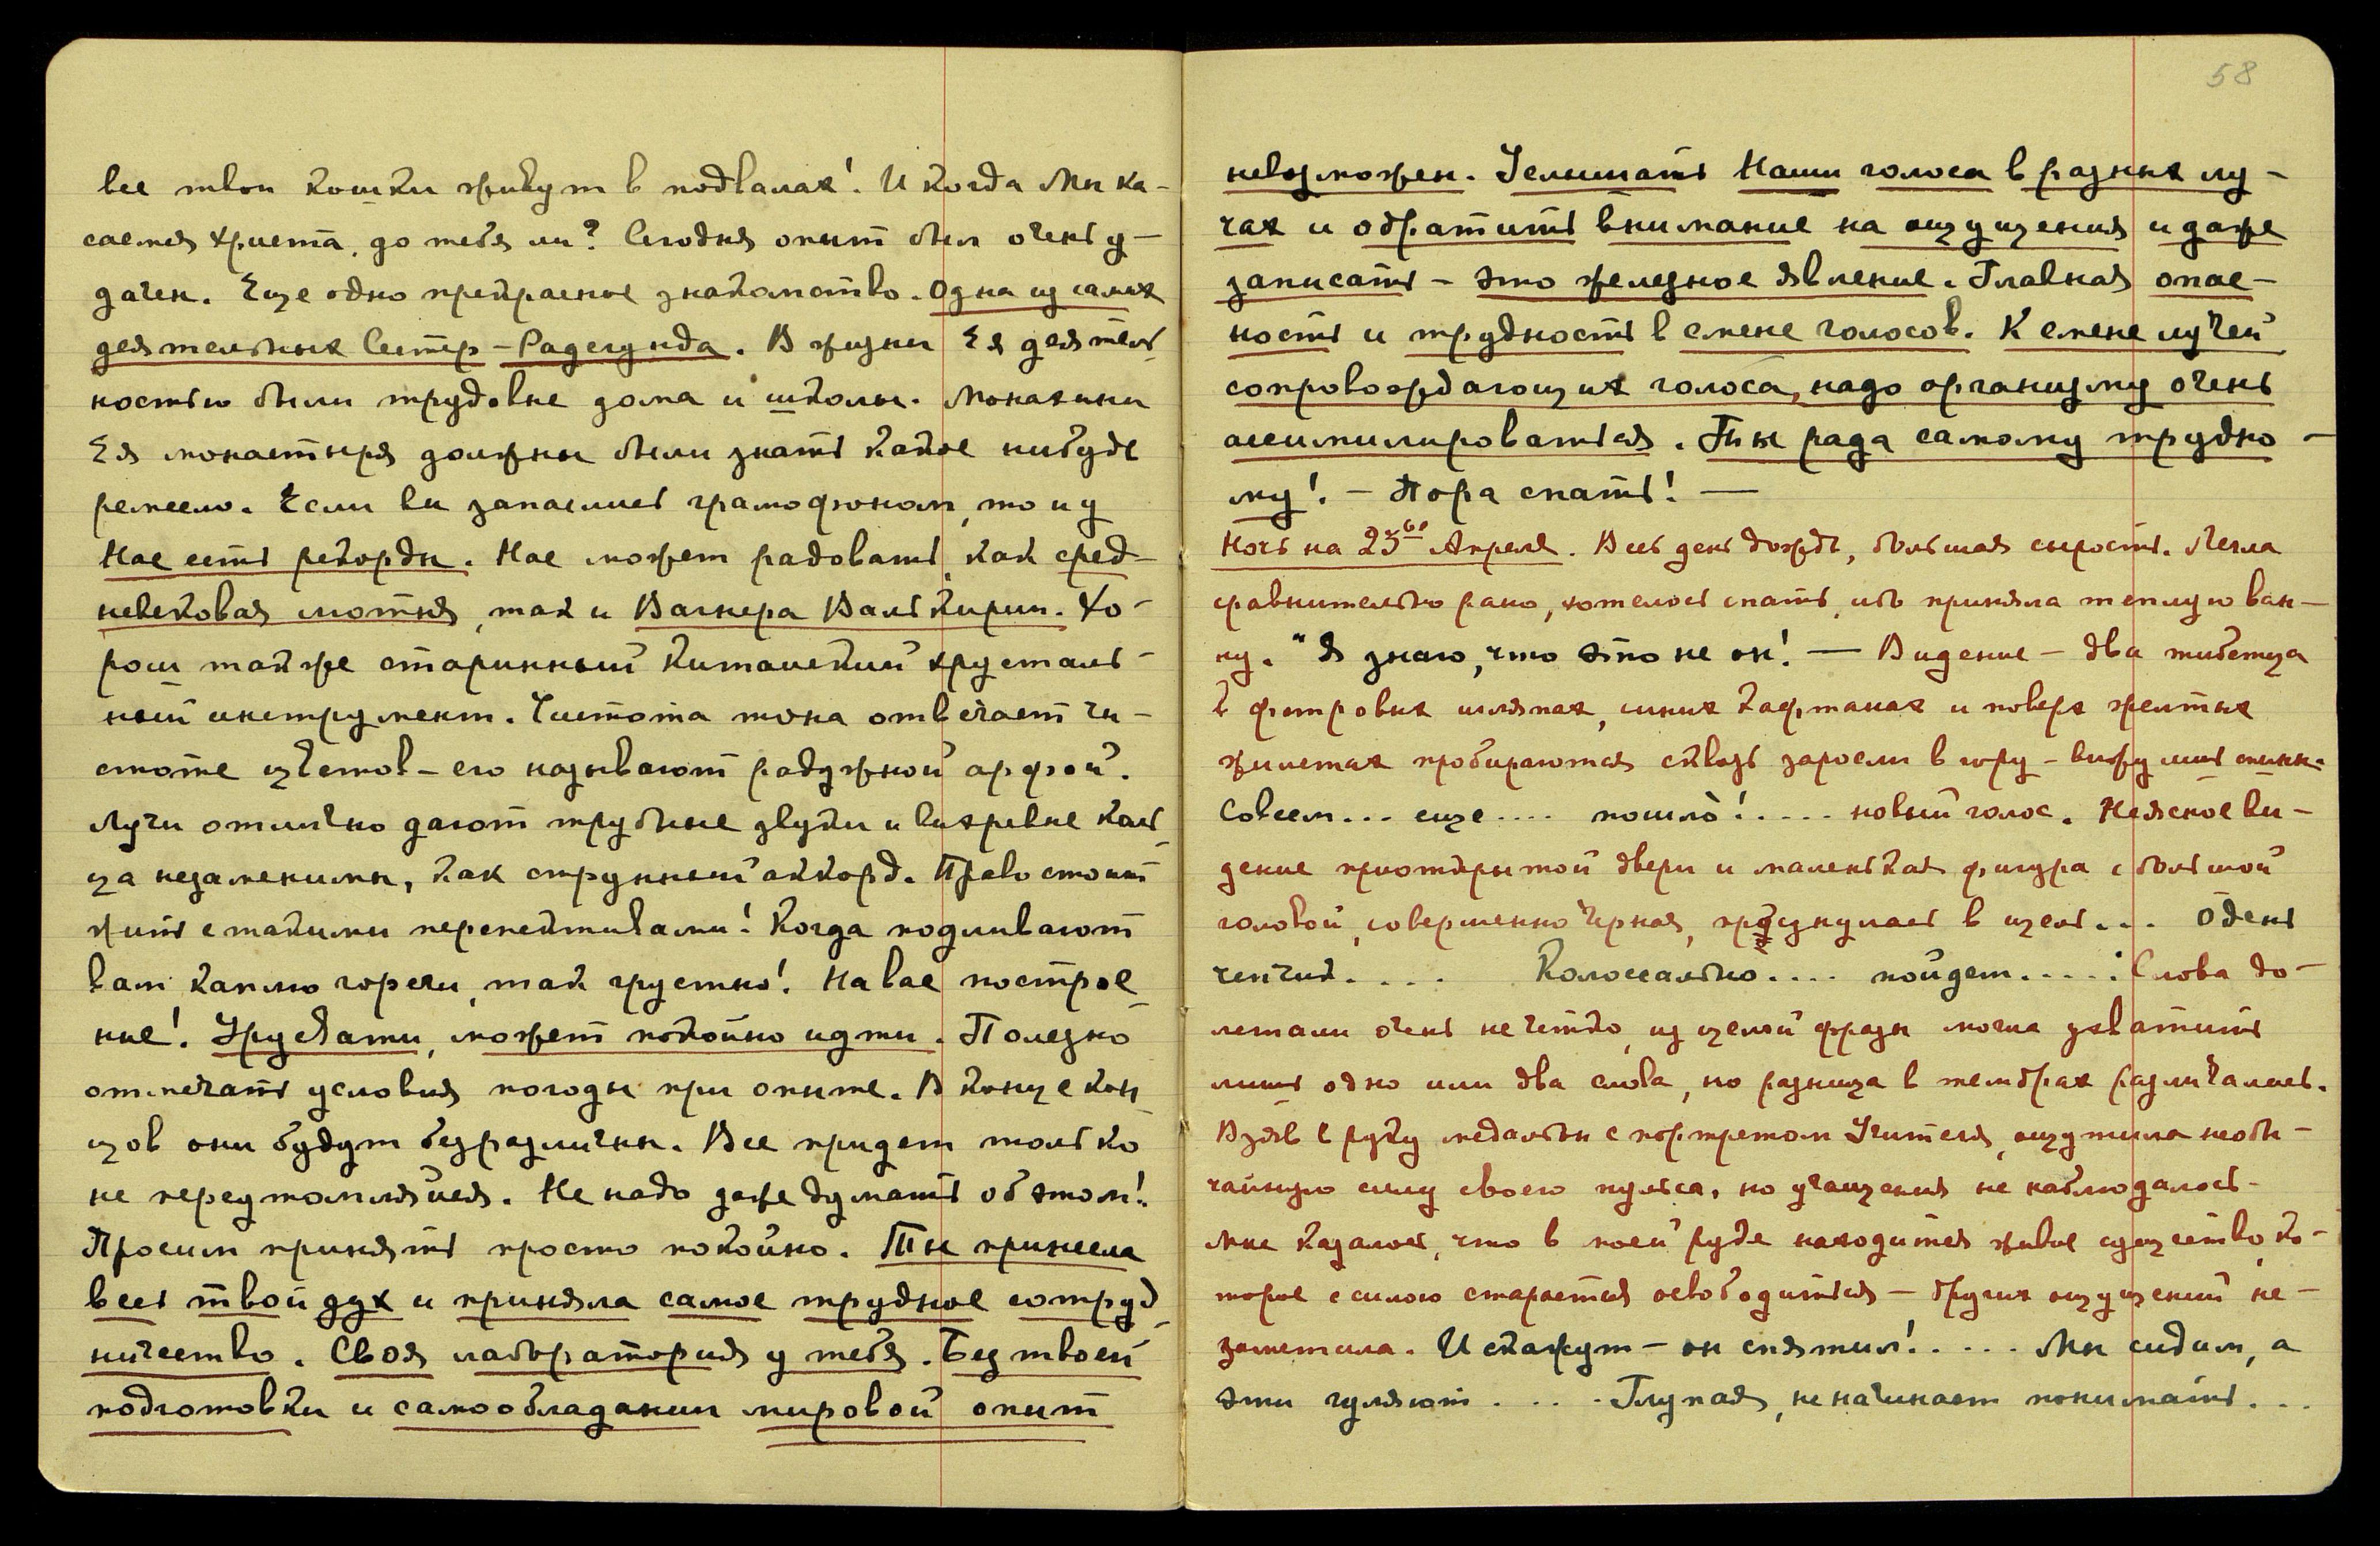 все твои кошки живут в подвалах! И когда Мы ка-
саемся Христа, до тебя ли? Сегодня опыт был очень у-
дачен. Еще одно прекрасное знакомство. Одна из самых
деятельных Сестр – Радегунда. В жизни Ея деятель-
ностью были трудовые дома и школы. Монахини
Ея монастыря должны были знать какое нибудь
ремесло. Если вы запаслись грамофоном, то и у
Нас есть рекорды. Нас может радовать, как сред-
невековая мотня, так и Вагнера Валькирии. Хо-
рош также старинный китайский хрусталь-
ный инструмент. Чистота тона отвечает чи-
стоте цветов – его называют радужной арфой.
Лучи отлично дают трубные звуки и вихревые коль-
ца незаменимы, как струнный аккорд. Право стоит
жить с такими перспективами! Когда подливают
вам каплю горечи, так грустно! На вас построе-
ние! Урусвати, может покойно идти. Полезно
отмечать условия погоды при опыте. В конце кон-
цов они будут безразличны. Все придет только
не переутомляйся. Не надо даже думать об этом!
Просим принять просто покойно. Ты принесла
весь твой дух и приняла самое трудное сотруд-
ничество. Своя лаборатория у тебя. Без твоей
подготовки и самообладании мировой опыт
58
невозможен. Услышать Наши голоса в разных лу-
чах и обратить внимание на ощущения и даже
записать – это железное явление. Главная опас-
ность и трудность в смене голосов. К смене лучей
сопровождающих голоса, надо организму очень
ассимилироваться. Ты рада самому трудно-
му! – Пора спать! —
Ночь на 23ье Апреля. Весь день дождь, большая сырость. Легла
сравнительно рано, хотелось спать, ибо приняла теплую ван-
ну. "Я знаю, что это не он! — Видение – два тибетца
в фетровых шляпах, синих кафтанах и поверх желтых
жилетах пробираются сквозь заросли в гору – вижу лишь спины.
Совсем... еще.... пошло!..... новый голос. Неясное ви-
дение приоткрытой двери и маленькая фигура с большой
головой, совершенно черная, в щель... Одень
чепчик..... Колоссально.... пойдет..... Слова до-
летали очень нечетко, из целой фразы могла ухватить
лишь одно или два слова, но разница в тембрах различалась.
Взяв в руку медальон с портретом Учителя, ощутила необы-
чайную силу своего пульса, но учащения не наблюдалось.
Мне казалось, что в моей руке находится живое существо, ко-
торое с силою старается освободиться – других ощущений не-
заметила. И скажут – он спятил!..... Мы сидим, а
эти гуляют.... Глупая, не начинает понимать...